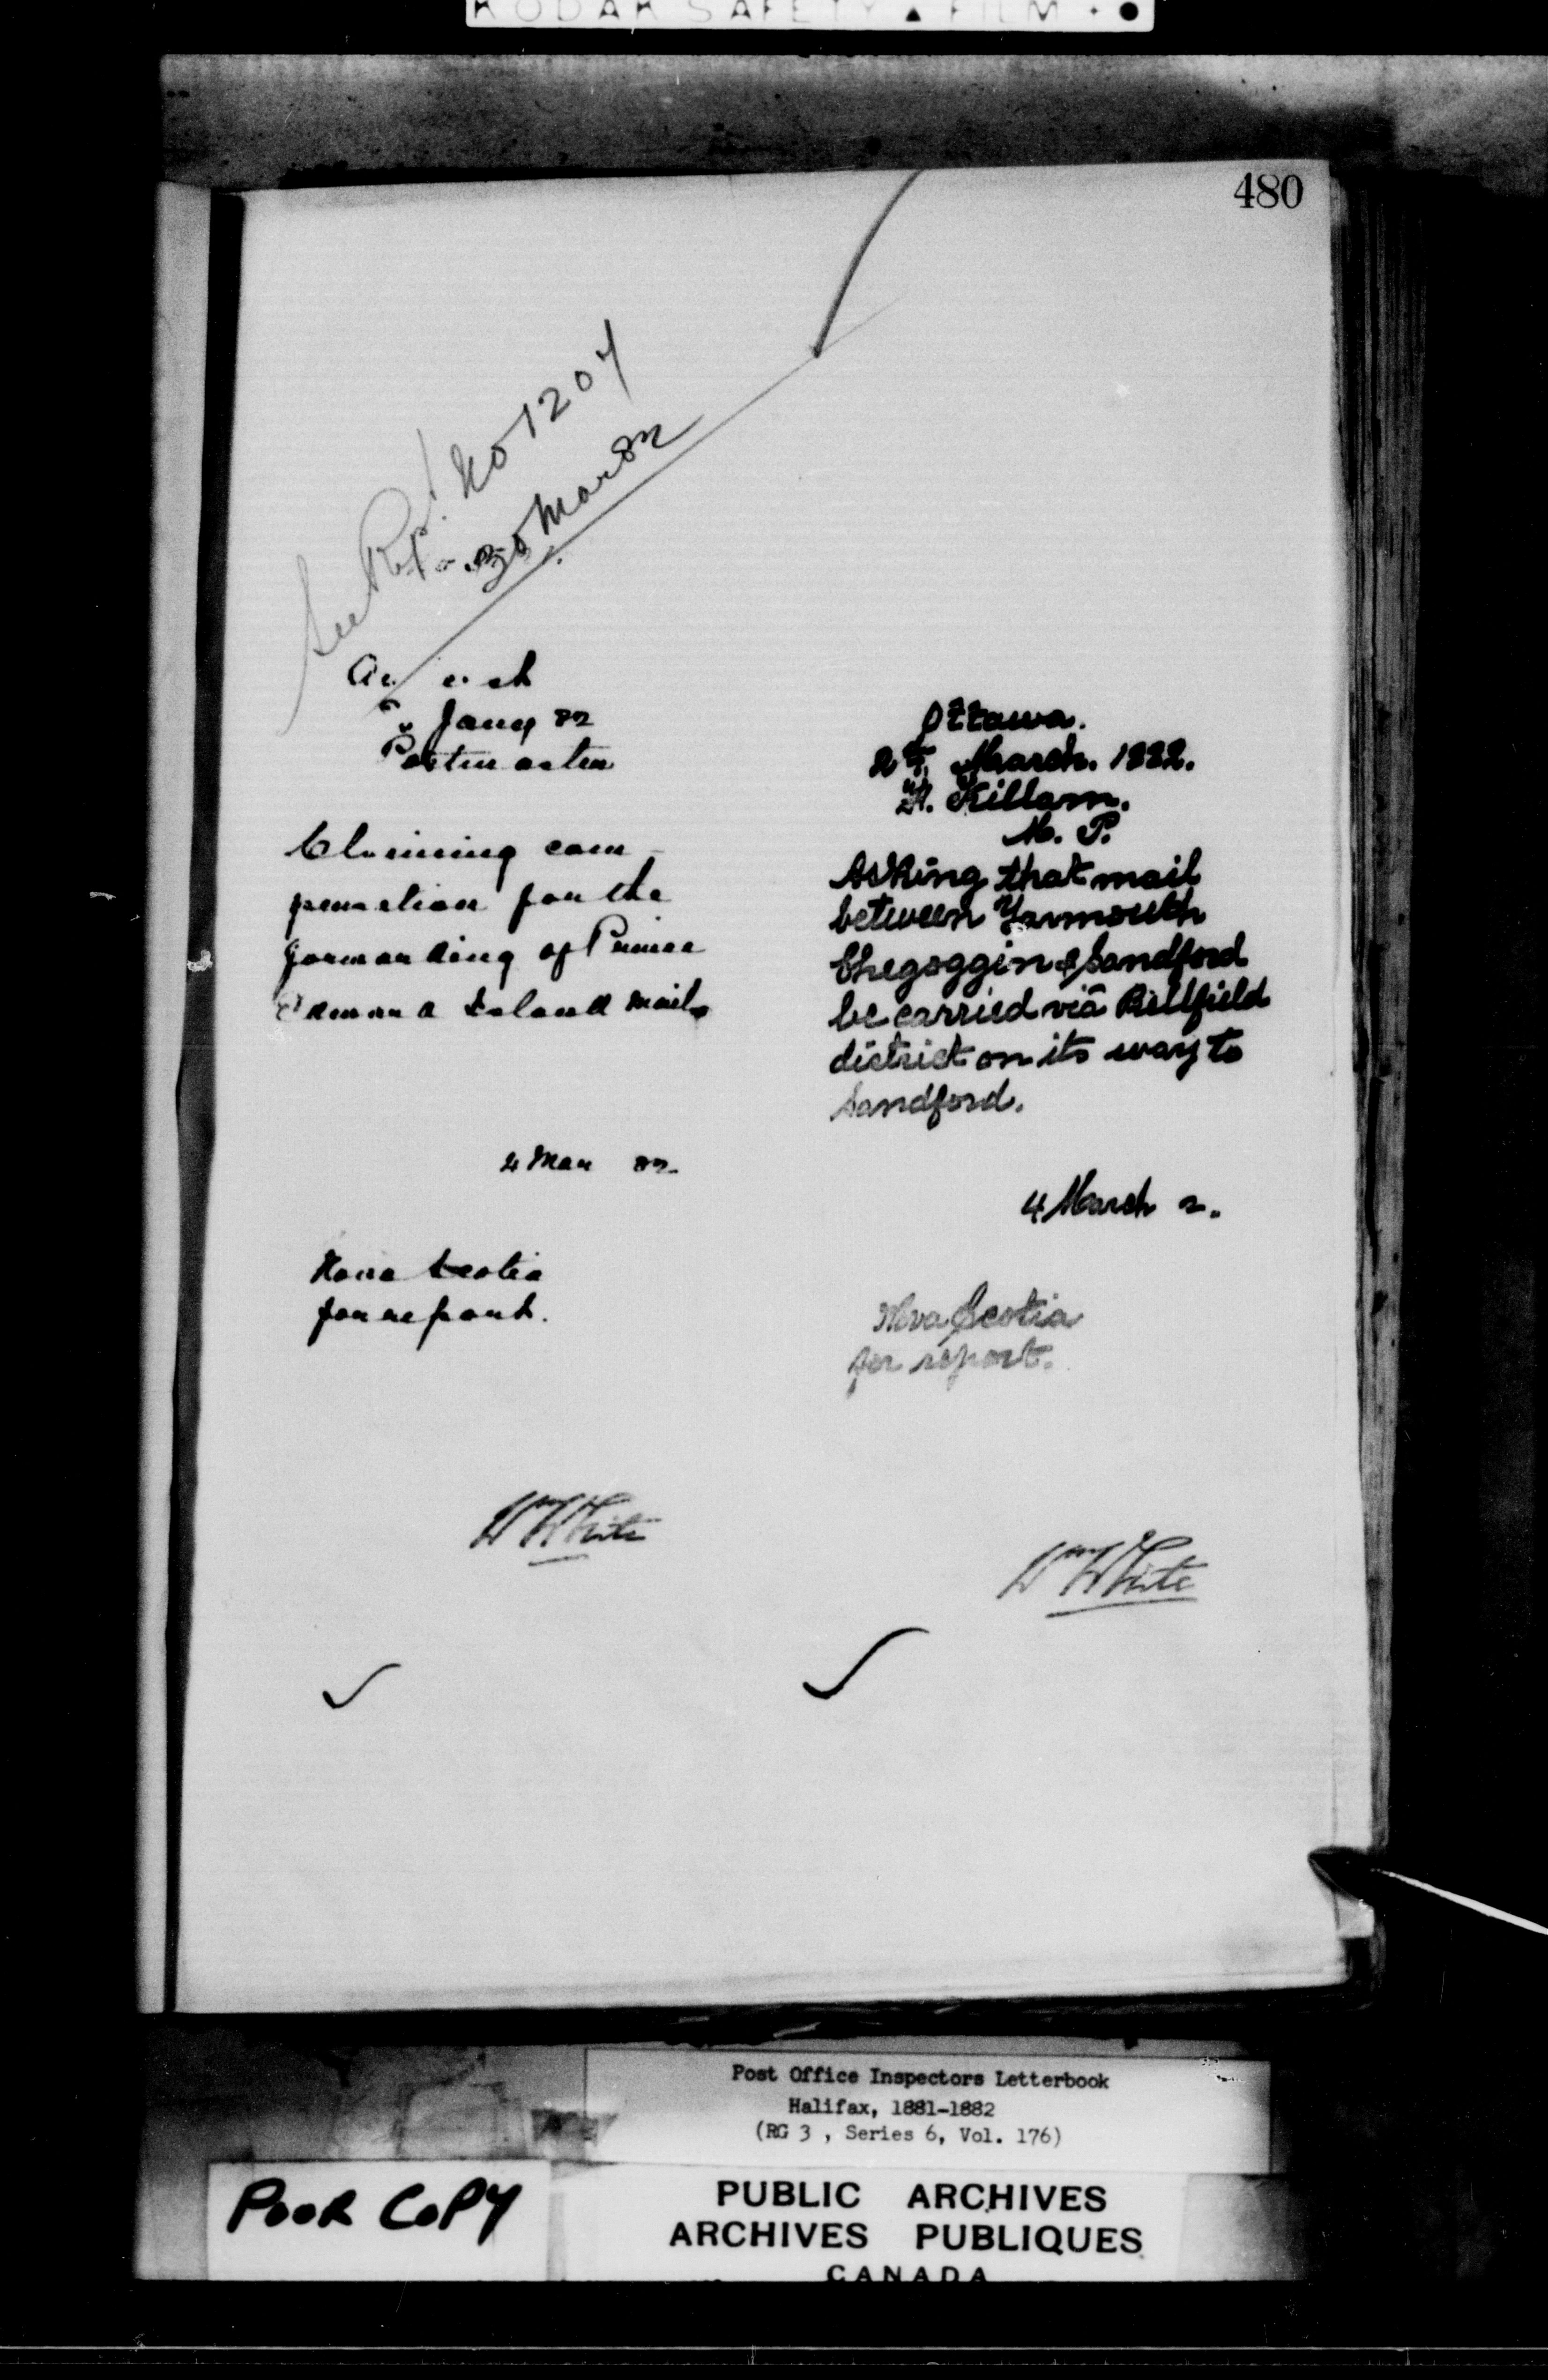 KODAK SAFETY ▲ FILM
480
See Rpt. No 1204
30 Mar 82
Jany 82
Postmaster
Claiming com-
pensation for the
forwarding of Prince
Edward Island mails
4 Mar 82
Nova Scotia
for report.
Wm White
Ottawa.
March. 1882.
Killam.
M. P.
Asking that mail
between Yarmouth
Chegoggin & Sandford
be carried viâ
district on its way to
Sandford.
4 March 2.
Nova Scotia
for report.
Wm White
Post Office Inspectors Letterbook
Halifax, 1881-1882
(RG 3 , Series 6, Vol. 176)
POOR COPY
PUBLIC ARCHIVES
ARCHIVES PUBLIQUES
CANADA